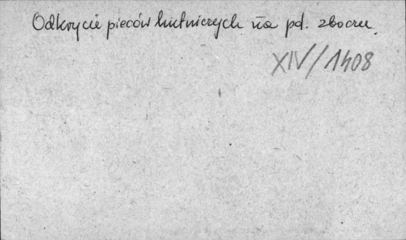 Odkrycie pieców hutniczych na pd. zboczu.
XIV/1408